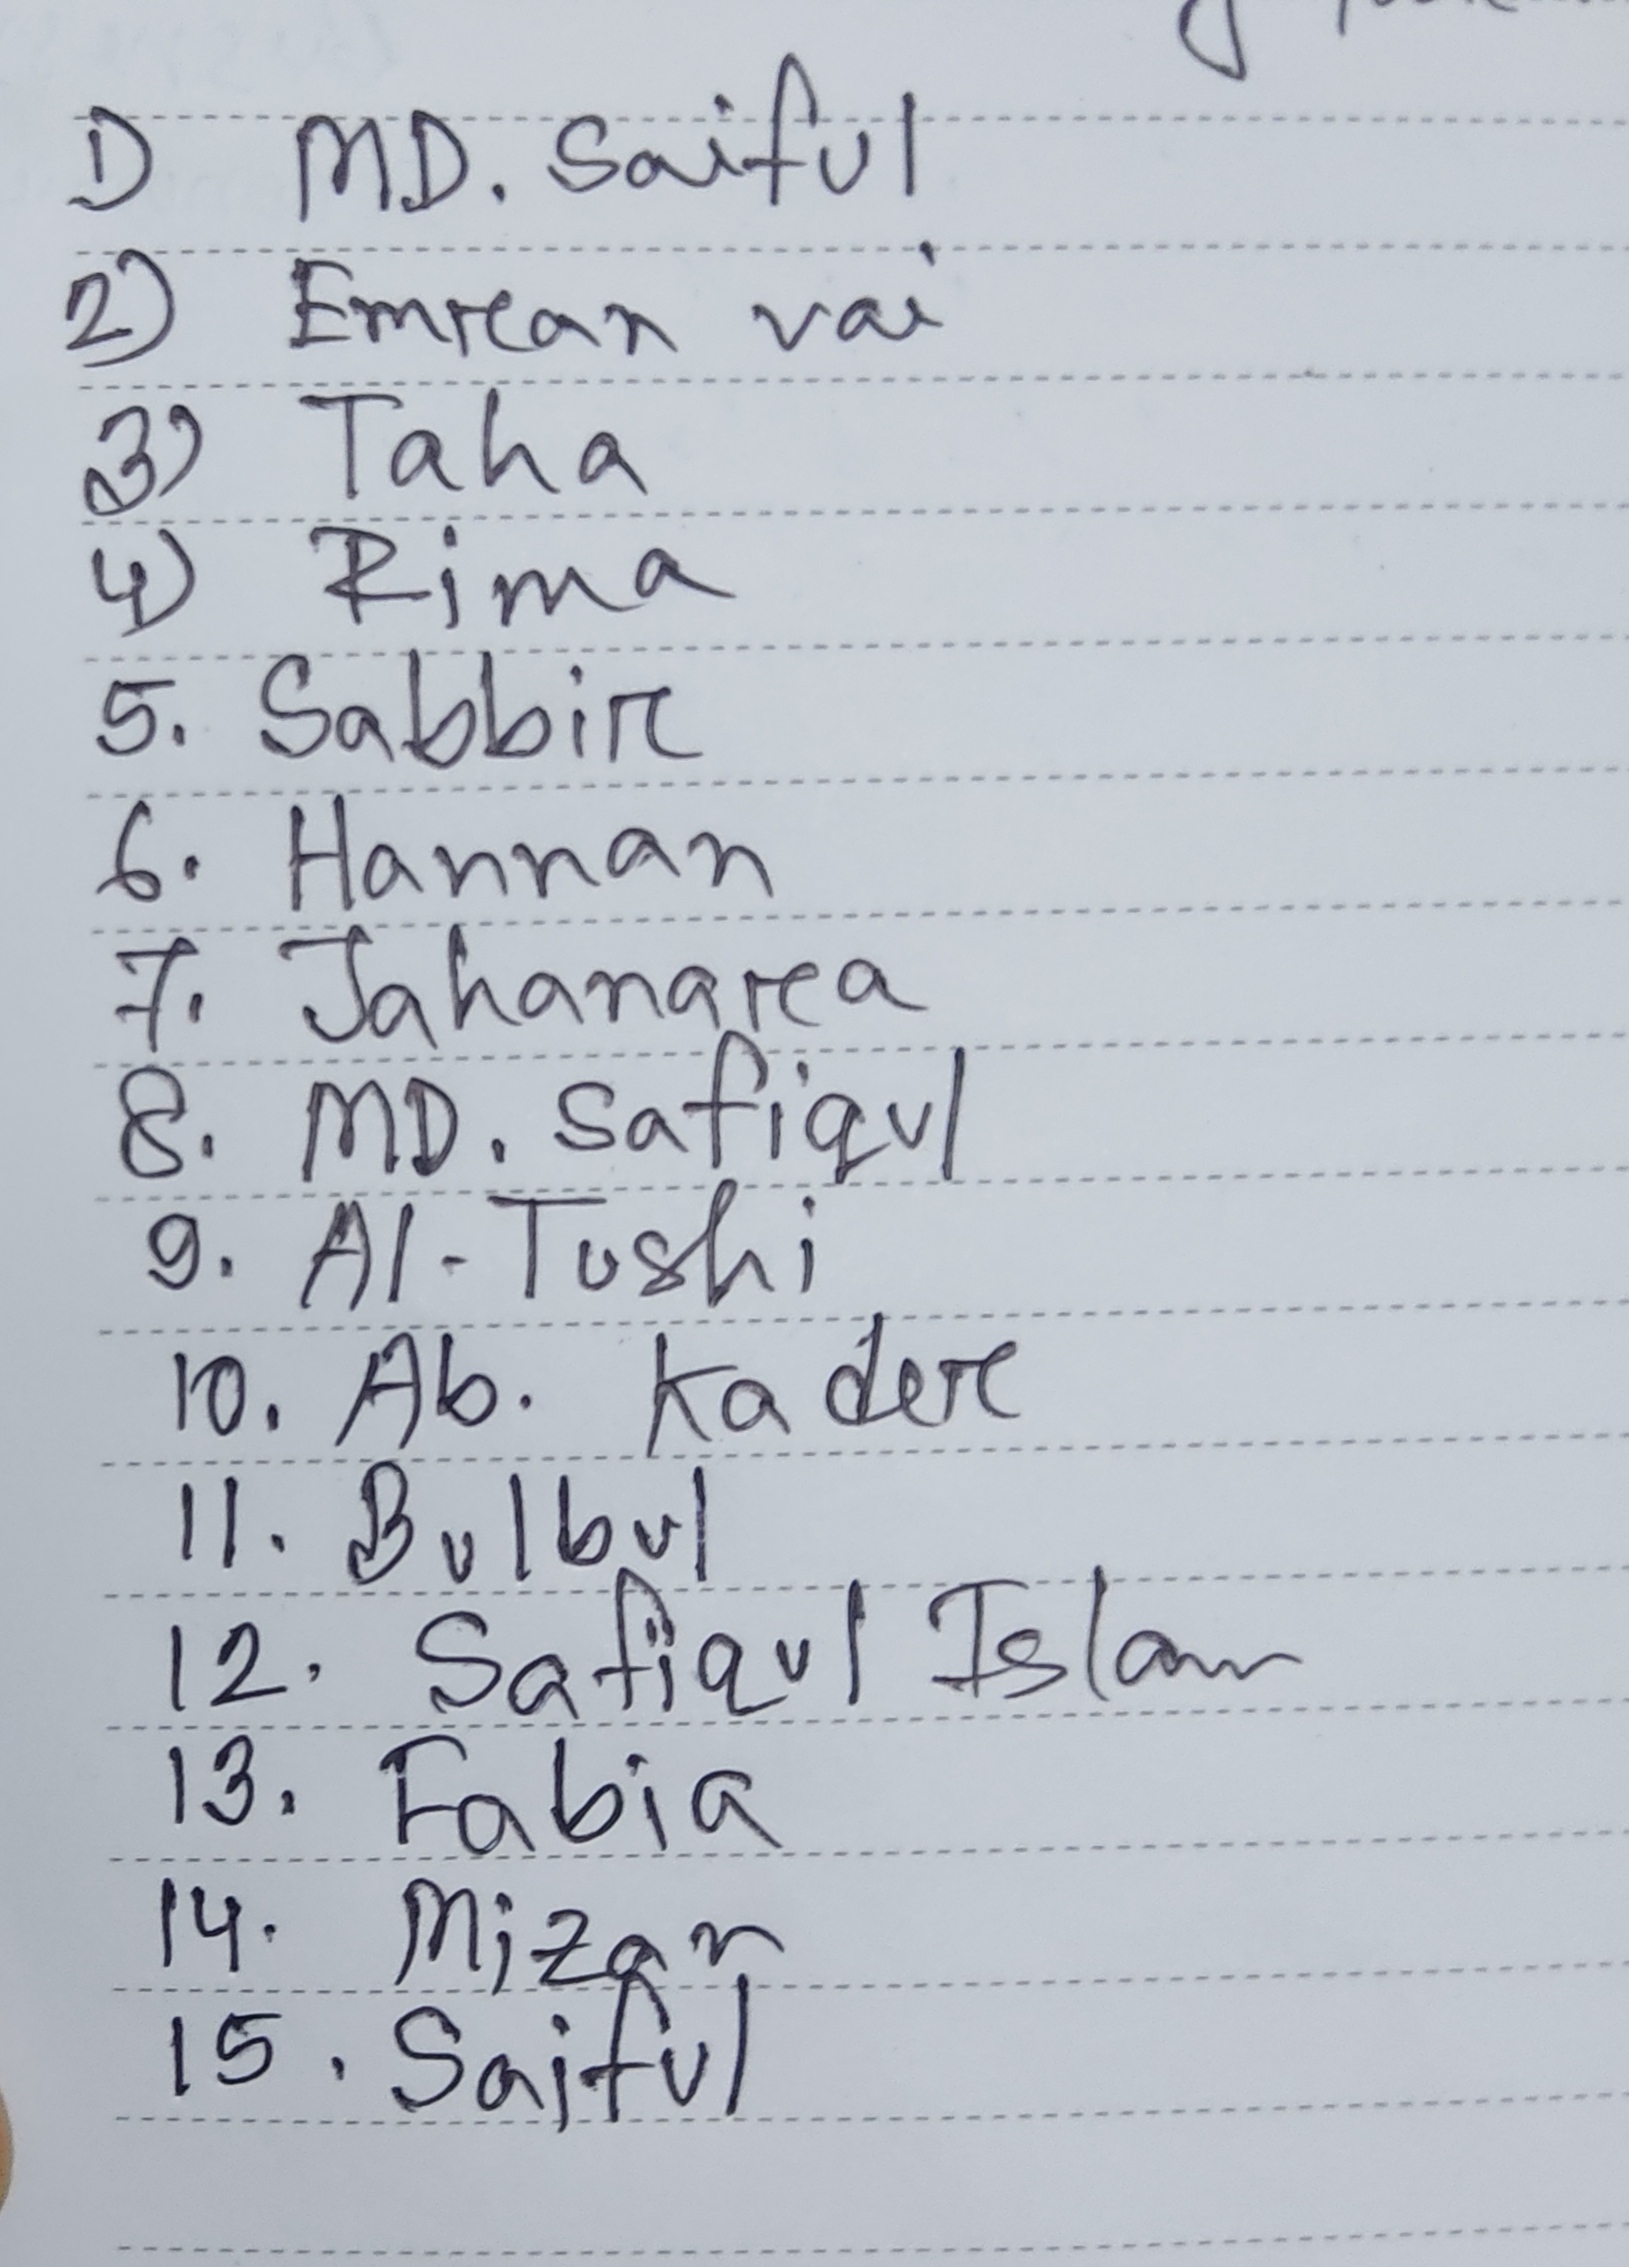 1) MD. Saiful
2) Emran vai
3) Taha
4) Rima
5. Sabbir
6. Hannan
7. Jahanara
8. MD. Safiqul
9. Al-Tushi
10. Ab. Kader
11. Bulbul
12. Safiqul Islam
13. Fabia
14. Mizan
15. Saiful